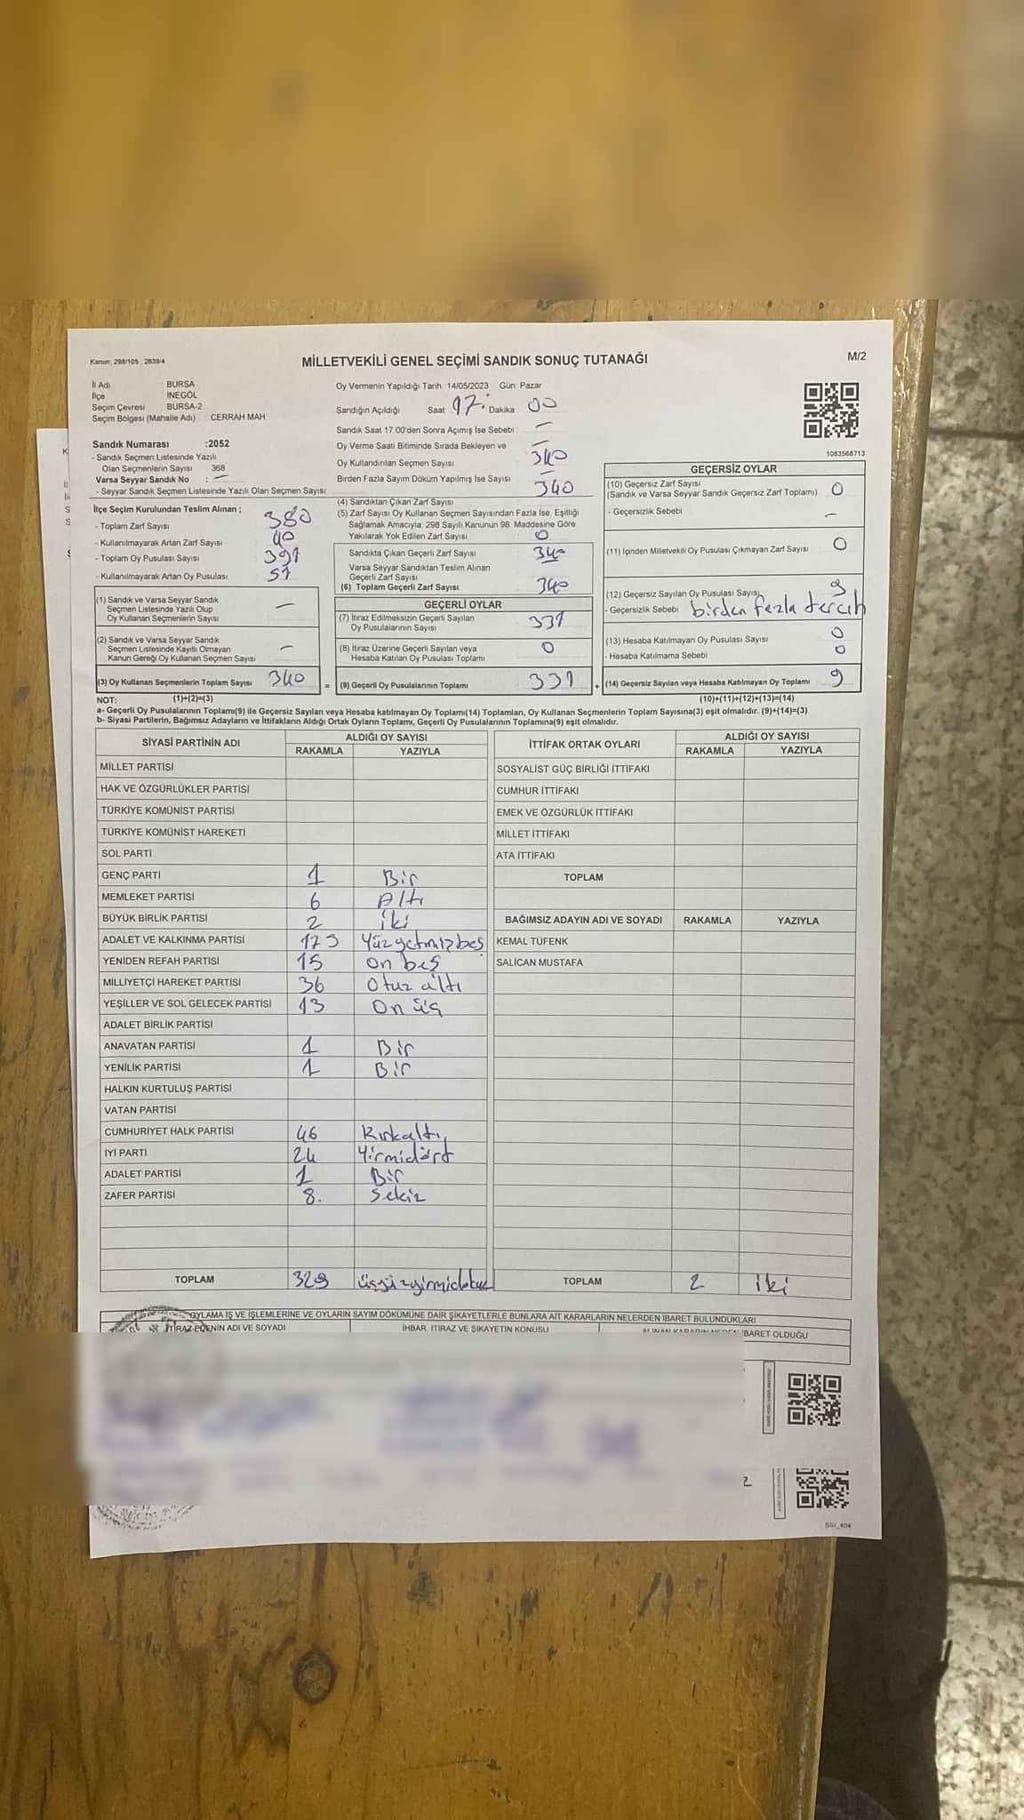 Kanun; 298/105 2839/4
MİLLETVEKİLİ GENEL SEÇİMİ SANDIK SONUÇ TUTANAĞI
M/2
İl Adı BURSA
İlçe İNEGÖL
Seçim Çevresi BURSA-2
Seçim Bölgesi (Mahalle Adı) CERRAH MAH
Sandık Numarası :2052
- Sandık Seçmen Listesinde Yazılı
Olan Seçmenlerin Sayısı 368
Varsa Seyyar Sandık No : —
- Seyyar Sandık Seçmen Listesinde Yazılı Olan Seçmen Sayısı
İlçe Seçim Kurulundan Teslim Alınan ;
- Toplam Zarf Sayısı 380
- Kullanılmayarak Artan Zarf Sayısı 40
- Toplam Oy Pusulası Sayısı 391
- Kullanılmayarak Artan Oy Pusulası 51
(1) Sandık ve Varsa Seyyar Sandık
Seçmen Listesinde Yazılı Olup
Oy Kullanan Seçmenlerin Sayısı —
(2) Sandık ve Varsa Seyyar Sandık
Seçmen Listesinde Kayıtlı Olmayan
Kanun Gereği Oy Kullanan Seçmen Sayısı —
(3) Oy Kullanan Seçmenlerin Toplam Sayısı 340
Oy Vermenin Yapıldığı Tarih 14/05/2023 Gün: Pazar
Sandığın Açıldığı Saat 17: Dakika 00
Sandık Saat 17:00'den Sonra Açımış İse Sebebi —
Oy Verme Saati Bitiminde Sırada Bekleyen ve —
Oy Kullandırılan Seçmen Sayısı 340
Birden Fazla Sayım Döküm Yapılmış İse Sayısı —
(4) Sandıktan Çıkan Zarf Sayısı 340
(5) Zarf Sayısı Oy Kullanan Seçmen Sayısından Fazla İse, Eşitliği
Sağlamak Amacıyla, 298 Sayılı Kanunun 98. Maddesine Göre
Yakılarak Yok Edilen Zarf Sayısı 0
Sandıkta Çıkan Geçerli Zarf Sayısı 340
Varsa Seyyar Sandıktan Teslim Alınan
Geçerli Zarf Sayısı
(6) Toplam Geçerli Zarf Sayısı 340
GEÇERLİ OYLAR
(7) İtiraz Edilmeksizin Geçerli Sayılan
Oy Pusulalarının Sayısı 331
(8) İtiraz Üzerine Geçerli Sayılan veya
Hesaba Katılan Oy Pusulası Toplamı 0
= (9) Geçerli Oy Pusulalarının Toplamı 331
1083568713
GEÇERSİZ OYLAR
(10) Geçersiz Zarf Sayısı
(Sandık ve Varsa Seyyar Sandık Geçersiz Zarf Toplamı) 0
- Geçersizlik Sebebi —
(11) İçinden Milletvekili Oy Pusulası Çıkmayan Zarf Sayısı 0
(12) Geçersiz Sayılan Oy Pusulası Sayısı 9
- Geçersizlik Sebebi birden fazla tercih
(13) Hesaba Katılmayan Oy Pusulası Sayısı 0
- Hesaba Katılmama Sebebi 0
+ (14) Geçersiz Sayılan veya Hesaba Katılmayan Oy Toplamı 9
NOT: (1)+(2)=(3) (10)+(11)+(12)+(13)=(14)
a- Geçerli Oy Pusulalarının Toplamı(9) ile Geçersiz Sayılan veya Hesaba katılmayan Oy Toplamı(14) Toplamları, Oy Kullanan Seçmenlerin Toplam Sayısına(3) eşit olmalıdır. (9)+(14)=(3)
b- Siyasi Partilerin, Bağımsız Adayların ve İttifakların Aldığı Ortak Oyların Toplamı, Geçerli Oy Pusulalarının Toplamına(9) eşit olmalıdır.
SİYASİ PARTİNİN ADI ALDIĞI OY SAYISI
RAKAMLA YAZIYLA
MİLLET PARTİSİ
HAK VE ÖZGÜRLÜKLER PARTİSİ
TÜRKİYE KOMÜNİST PARTİSİ
TÜRKİYE KOMÜNİST HAREKETİ
SOL PARTİ
GENÇ PARTİ 1 Bir
MEMLEKET PARTİSİ 6 Altı
BÜYÜK BİRLİK PARTİSİ 2 iki
ADALET VE KALKINMA PARTİSİ 175 Yüzyetmişbeş
YENİDEN REFAH PARTİSİ 15 on beş
MİLLİYETÇİ HAREKET PARTİSİ 36 Otuz altı
YEŞİLLER VE SOL GELECEK PARTİSİ 13 On üç
ADALET BİRLİK PARTİSİ
ANAVATAN PARTİSİ 1 Bir
YENİLİK PARTİSİ 1 Bir
HALKIN KURTULUŞ PARTİSİ
VATAN PARTİSİ
CUMHURİYET HALK PARTİSİ 46 Kırkaltı
İYİ PARTİ 24 Yirmidört
ADALET PARTİSİ 1 Bir
ZAFER PARTİSİ 8. Sekiz
TOPLAM 329
İTTİFAK ORTAK OYLARI ALDIĞI OY SAYISI
RAKAMLA YAZIYLA
SOSYALİST GÜÇ BİRLİĞİ İTTİFAKI
CUMHUR İTTİFAKI
EMEK VE ÖZGÜRLÜK İTTİFAKI
MİLLET İTTİFAKI
ATA İTTİFAKI
TOPLAM
BAĞIMSIZ ADAYIN ADI VE SOYADI RAKAMLA YAZIYLA
KEMAL TÜFENK
SALİCAN MUSTAFA
TOPLAM 2 iki
OYLAMA İŞ VE İŞLEMLERİNE VE OYLARIN SAYIM DÖKÜMÜNE DAİR ŞİKAYETLERLE BUNLARA AİT KARARLARIN NELERDEN İBARET BULUNDUKLARI
İTİRAZ EDENİN ADI VE SOYADI İHBAR, İTİRAZ VE ŞİKAYETİN KONUSU İBARET OLDUĞU